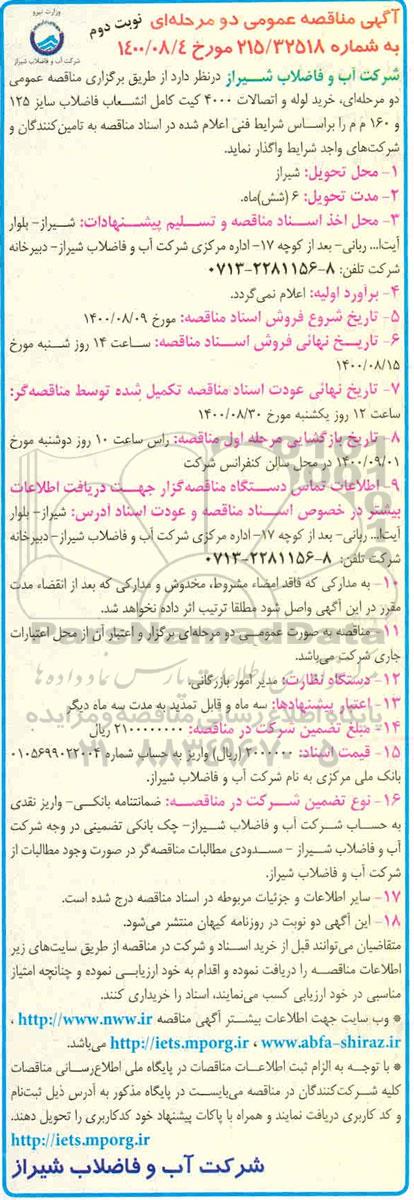 وزارت نیرو
شرکت آب و فاضلاب شیراز
آگهی مناقصه عمومی دو مرحله‌ای نوبت دوم
به شماره ۲۱۵/۳۲۵۱۸ مورخ ۱۴۰۰/۰۸/۴
شرکت آب و فاضلاب شیراز درنظر دارد از طریق برگزاری مناقصه عمومی
دو مرحله‌ای، خرید لوله و اتصالات ۴۰۰۰ کیت کامل انشعاب فاضلاب سایز ۱۲۵
و ۱۶۰ م م را براساس شرایط فنی اعلام شده در اسناد مناقصه به تامین‌کنندگان و
شرکت‌های واجد شرایط واگذار نماید.
۱- محل تحویل: شیراز
۲- مدت تحویل: ۶ (شش)ماه.
۳- محل اخذ اسناد مناقصه و تسلیم پیشنهادات: شیراز- بلوار
آیت‌ا... ربانی- بعد از کوچه ۱۷- اداره مرکزی شرکت آب و فاضلاب شیراز- دبیرخانه
شرکت تلفن: ۸-۲۲۸۱۱۵۶-۰۷۱۳
۴- برآورد اولیه: اعلام نمی‌گردد.
۵- تاریخ شروع فروش اسناد مناقصه: مورخ ۱۴۰۰/۰۸/۰۹
۶- تاریخ نهائی فروش اسناد مناقصه: ساعت ۱۴ روز شنبه مورخ
۱۴۰۰/۰۸/۱۵
۷- تاریخ نهائی عودت اسناد مناقصه تکمیل شده توسط مناقصه‌گر:
ساعت ۱۲ روز یکشنبه مورخ ۱۴۰۰/۰۸/۳۰
۸- تاریخ بازگشایی مرحله اول مناقصه: راس ساعت ۱۰ روز دوشنبه مورخ
۱۴۰۰/۰۹/۰۱ در محل سالن کنفرانس شرکت
۹- اطلاعات تماس دستگاه مناقصه‌گزار جهت دریافت اطلاعات
بیشتر در خصوص اسناد مناقصه و عودت اسناد آدرس: شیراز- بلوار
آیت‌ا... ربانی- بعد از کوچه ۱۷- اداره مرکزی شرکت آب و فاضلاب شیراز- دبیرخانه
شرکت تلفن: ۸-۲۲۸۱۱۵۶-۰۷۱۳
۱۰- به مدارکی که فاقد امضاء مشروط، مخدوش و مدارکی که بعد از انقضاء مدت
مقرر در این آگهی واصل شود مطلقا ترتیب اثر داده نخواهد شد.
۱۱- مناقصه به صورت عمومی دو مرحله‌ای برگزار و اعتبار آن از محل اعتبارات
جاری شرکت می‌باشد.
۱۲- دستگاه نظارت: مدیر امور بازرگانی.
۱۳- اعتبار پیشنهادها: سه ماه و قابل تمدید به مدت سه ماه دیگر
۱۴- مبلغ تضمین شرکت در مناقصه: ۲۱۰۰۰۰۰۰۰۰ ریال
۱۵- قیمت اسناد: ۲۰۰۰۰۰۰ (ریال) واریز به حساب شماره ۰۱۰۵۶۹۹۰۲۲۰۰۴
بانک ملی مرکزی به نام شرکت آب و فاضلاب شیراز.
۱۶- نوع تضمین شرکت در مناقصه: ضمانتنامه بانکی- واریز نقدی
به حساب شرکت آب و فاضلاب شیراز- چک بانکی تضمینی در وجه شرکت
آب و فاضلاب شیراز - مسدودی مطالبات مناقصه‌گر در صورت وجود مطالبات از
شرکت آب و فاضلاب شیراز.
۱۷- سایر اطلاعات و جزئیات مربوطه در اسناد مناقصه درج شده است.
۱۸- این آگهی دو نوبت در روزنامه کیهان منتشر می‌شود.
متقاضیان می‌توانند قبل از خرید اسناد و شرکت در مناقصه از طریق سایت‌های زیر
اطلاعات مناقصه را دریافت نموده و اقدام به خود ارزیابی نموده و چنانچه امتیاز
مناسبی در خود ارزیابی کسب می‌نمایند، اسناد را خریداری کنند.
* وب سایت جهت اطلاعات بیشتر آگهی مناقصه http://www.nww.ir ،
www.abfa-shiraz.ir ، http://iets.mporg.ir می‌باشد.
* با توجه به الزام ثبت اطلاعات مناقصات در پایگاه ملی اطلاع‌رسانی مناقصات
کلیه شرکت‌کنندگان در مناقصه می‌بایست در پایگاه مذکور به آدرس ذیل ثبت‌نام
و کد کاربری دریافت نمایند و همراه با پاکات پیشنهاد خود کدکاربری را تحویل دهند.
http://iets.mporg.ir
شرکت آب و فاضلاب شیراز